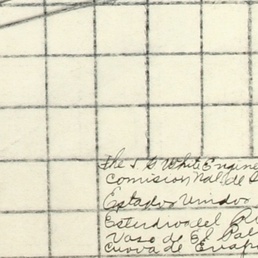 The J G White Engine
Comision Nal. de
Estados Unidos
Vaso de El Pal
curva de Evap